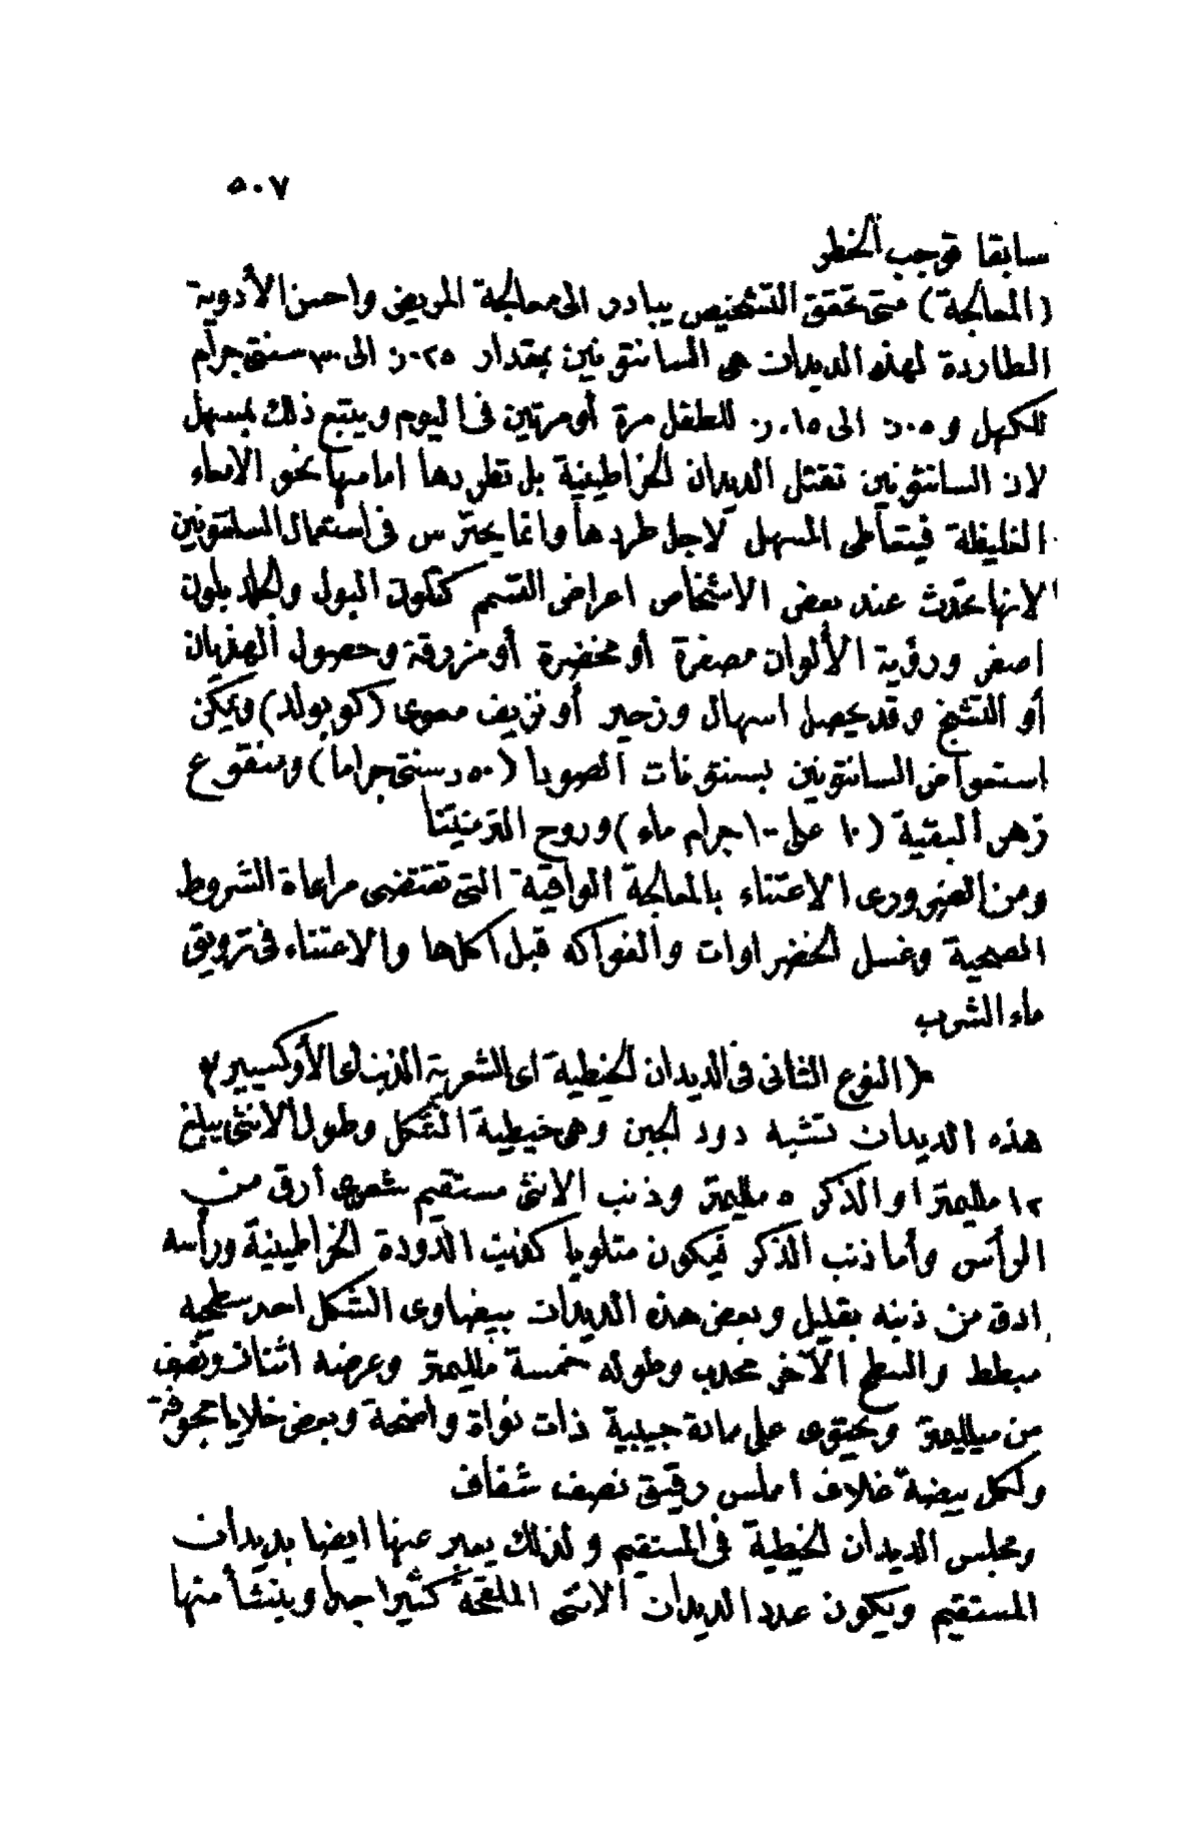 ٥٠٧
سابقا توجب الخطر
(المعالجة) متى تحقق التشخيص يبادر الى معالجة المريض واحسن الأدوية
الطاردة لهذه الديدان هى السانتونين بمقدار ٠٫٢٥ الى ٣٠ سنتى جرام
للكهل و ٠٫٠٥ الى ٠٫١٥ للطفل مرة أو مرتين فى اليوم ويتبع ذلك بمسهل
لان السانتونين تقتل الديدان الخراطينية بل تطردها امامها نحو الامعاء
الغليظة فيتعاطى المسهل لاجل طردها وانما يحترس فى استعمال السانتونين
لانها تحدث عند بعض الاشخاص اعراض التسمم كتكون البول والجلد بلون
اصفر ورؤية الألوان مصفرة أو مخضرة أو مزرقة وحصول الهذيان
أو التشنج وقد يحصل اسهال وزحير أو نزيف معوى (كوبولد) ويمكن
استعواض السانتونين بسنتونات الصودا (٥٠ر سنتى جراما) ومنقوع
زهر البقية (١٠ على ١٠٠ جرام ماء) وروح الترمنيتنا
ومن الضرورى الاعتناء بالمعالجة الواقية التى تقتضى مراعاة الشروط
الصحية وغسل الخضراوات والفواكه قبل اكلها والاعتناء فى ترويق
ماء الشرب
(النوع الثانى فى الديدان الخيطية اى الشعرية الذنب اى الأوكسيير)
هذه الديدان تشبه دود الجبن وهى خيطية الشكل وطول الانثى يبلغ
١٢ مليمترا والذكر ٥ مليمتر وذنب الانثى مستقيم شعرى أرق من
الرأس وأما ذنب الذكر فيكون متلويا كذنب الدودة الخراطينية ورأسه
ادق من ذنبه بقليل وبعض هذه الديدان بيضاوى الشكل احد سطحيه
مبطط والسطح الآخر محدب وطوله خمسة مليمتر وعرضه اثنان ونصف
من ميليمتر ويحتوى على مادة حبيبية ذات نواة واضحة وبعض خلايا مجوفة
ولكل بيضة غلاف املس رقيق نصف شفاف
ومجلس الديدان الخيطية فى المستقيم ولذلك يعبر عنها ايضا بديدان
المستقيم ويكون عدد الديدان الانثى الملقحة كثيرا جدا وينشأ منها